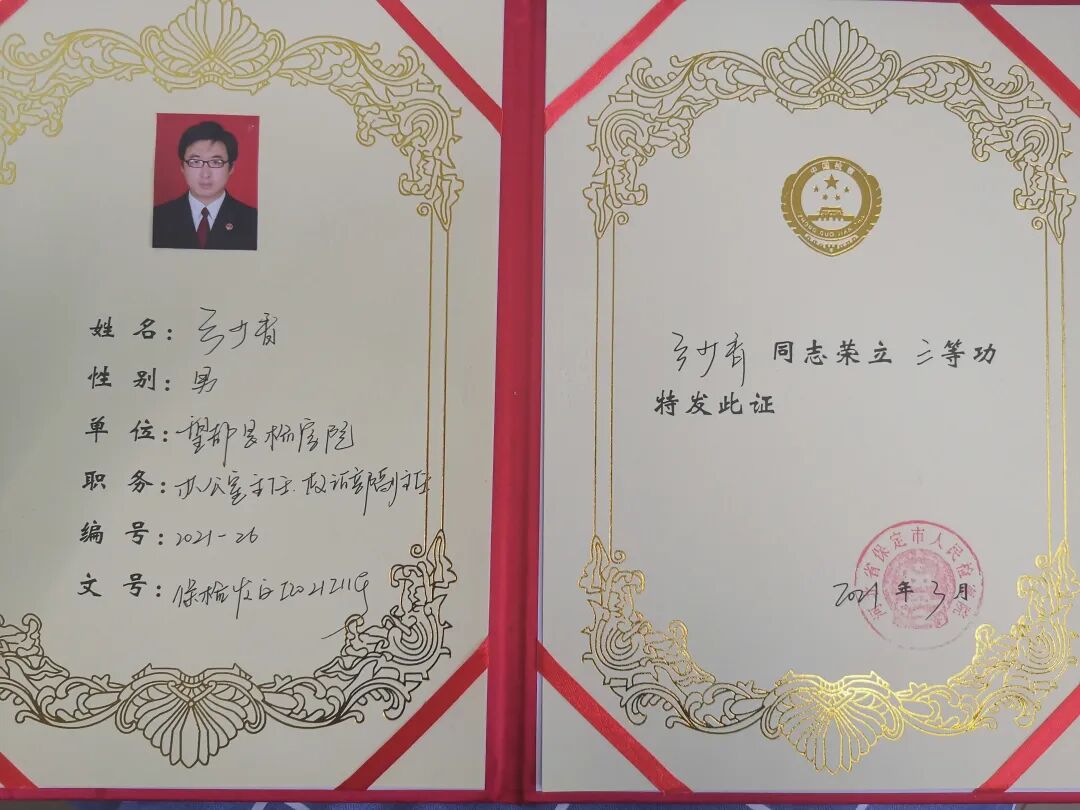 姓 名：
性 别：男
单 位：望都县检察院
职 务：办公室主任、政治部副主任
编 号：2021-26
文 号：保检发 [2021]11号
中国检察
ZHONG GUO JIAN CHA
同志荣立 三等功
特发此证
河北省保定市人民检察院
2021 年 3 月